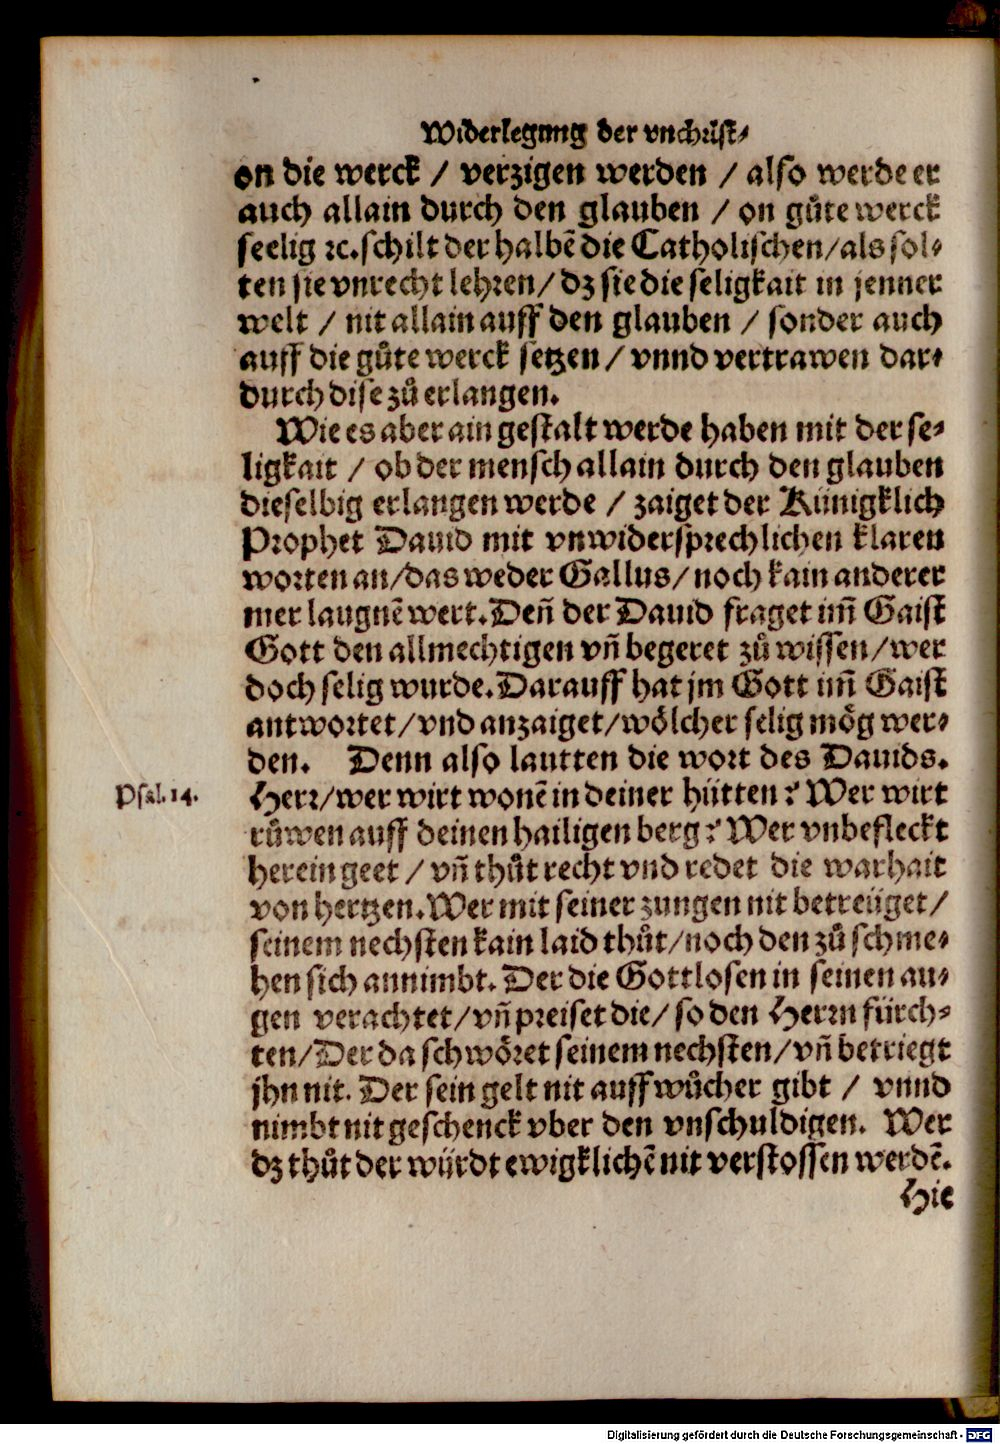 Widerlegung der vnchꝛist⸗
on die werck / verzigen werden / also werde er
auch allain durch den glauben / on gůte werck
seelig ꝛc. schilt der halbẽ die Catholischen/als sol⸗
ten sie vnrecht lehꝛen/ dz sie die seligkait in jenner
welt / nit allain auff den glauben / sonder auch
auff die gůte werck setzen / vnnd vertrawen dar⸗
durch dise zů erlangen.
Wie es aber ain gestalt werde haben mit der se⸗
ligkait / ob der mensch allain durch den glauben
dieselbig erlangen werde / zaiget der Künigklich
Pꝛophet Dauid mit vnwidersprechlichen klaren
woꝛten an/das weder Gallus/noch kain anderer
mer laugnẽ wert. Deñ der Dauid fraget im̃ Gaist
Gott den allmechtigen vñ begeret zů wissen/wer
doch selig wurde. Darauff hat jm Gott im̃ Gaist
antwoꝛtet/vnd anzaiget/wölcher selig mög wer⸗
den. Denn also lautten die woꝛt des Dauids.
Psal. 14.
Herꝛ/wer wirt wonẽ in deiner hütten? Wer wirt
růwen auff deinen hailigen berg? Wer vnbefleckt
herein geet / vñ thůt recht vnd redet die warhait
von hertzen. Wer mit seiner zungen nit betreüget/
seinem nechsten kain laid thůt/noch den zů schme⸗
hen sich annimbt. Der die Gottlosen in seinen au⸗
gen verachtet/vñ pꝛeiset die/ so den Herꝛn fürch⸗
ten/Der da schwöꝛet seinem nechsten/vñ betriegt
jhn nit. Der sein gelt nit auff wůcher gibt / vnnd
nimbt nit geschenck vber den vnschuldigen. Wer
dz thůt der würdt ewigklichẽ nit verstossen werdẽ.
Hie
Digitalisierung gefördert durch die Deutsche Forschungsgemeinschaft - DFG